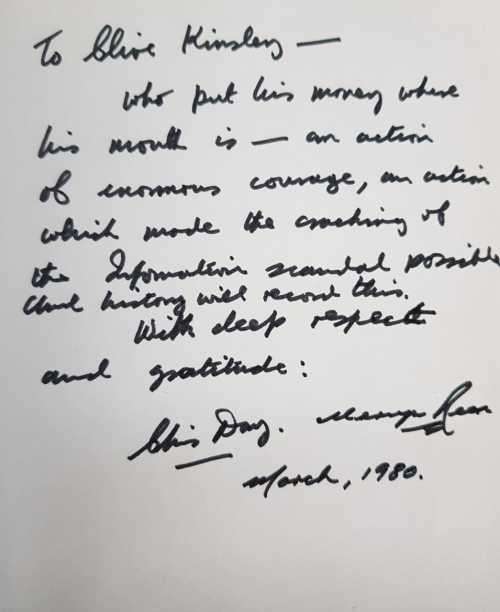 To Clive Kinsley —
who put his money where
his mouth is — an action
of enormous courage, an action
which made the cracking of
the Information scandal possible
and history will record this.
With deep respect
and gratitude:
Chris Day. Mervyn Rees
March, 1980.